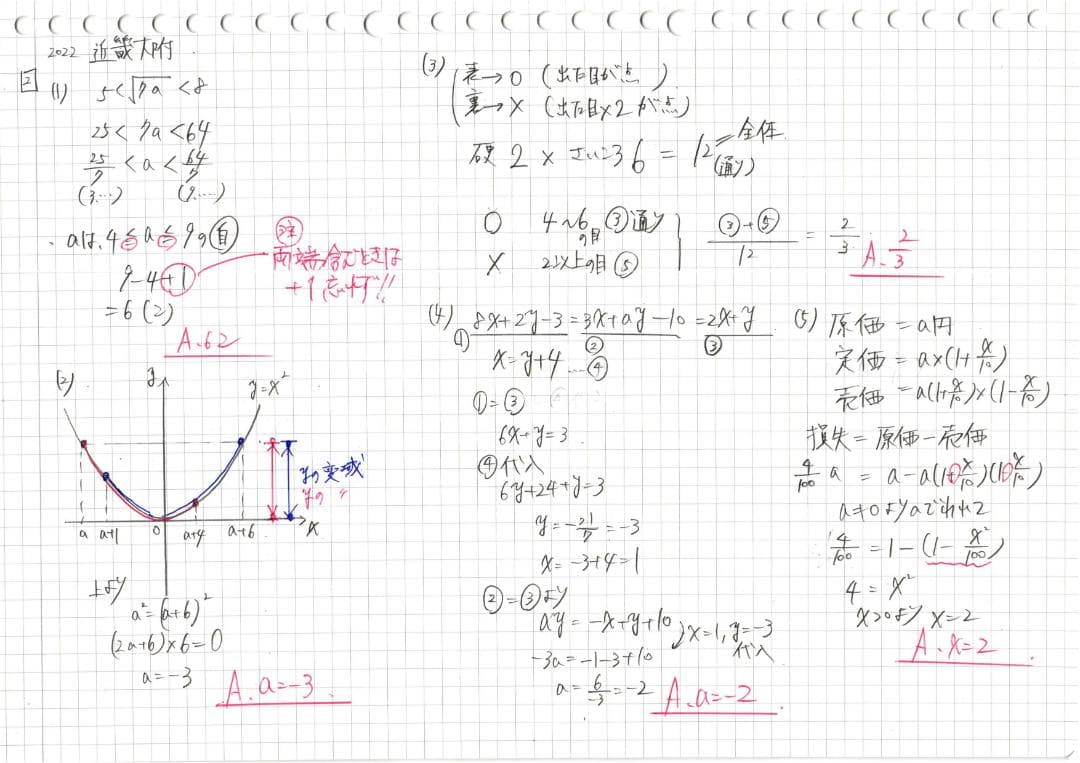 2022 近畿大附
2
(1) 5<√7a<8
25<7a<64
25/7<a<64/7
(3.…) (9.…)
・aは、4≦a≦9の自
9-4+1
=6(コ)
注
両端含むときは
+1忘れず!!
A. 6コ
(2)
y
y=x²
yの変域
yの 〃
a a+1 0 a+4 a+6 x
上より
a²=(a+6)²
(2a+6)×6=0
a=-3
A. a=-3
(3) 表→○ (出た目が点)
裏→× (出た目×2が点)
硬2×さいころ6=12(通り) 全体
○ 4~6の目 ③通り
× 2以上の目 ⑤
(③+⑤)/12 = 2/3
A. 2/3
(4) 8x+2y-3=3x+ay-10=2x+y
① ② ③
x=y+4 … ④
①=③
6x+y=3
④代入
6y+24+y=3
y=-21/7=-3
x=-3+4=1
②=③より
ay=-x+y+10
x=1, y=-3
代入
-3a=-1-3+10
a=6/-3=-2
A. a=-2
(5) 原価=a円
定価=a×(1+x/10)
売価=a(1+x/10)×(1-x/10)
損失=原価-売価
4/100 a = a-a(1+x/10)(1-x/10)
a≠0よりaでわって
4/100=1-(1-x²/100)
4=x²
x>0より x=2
A. x=2